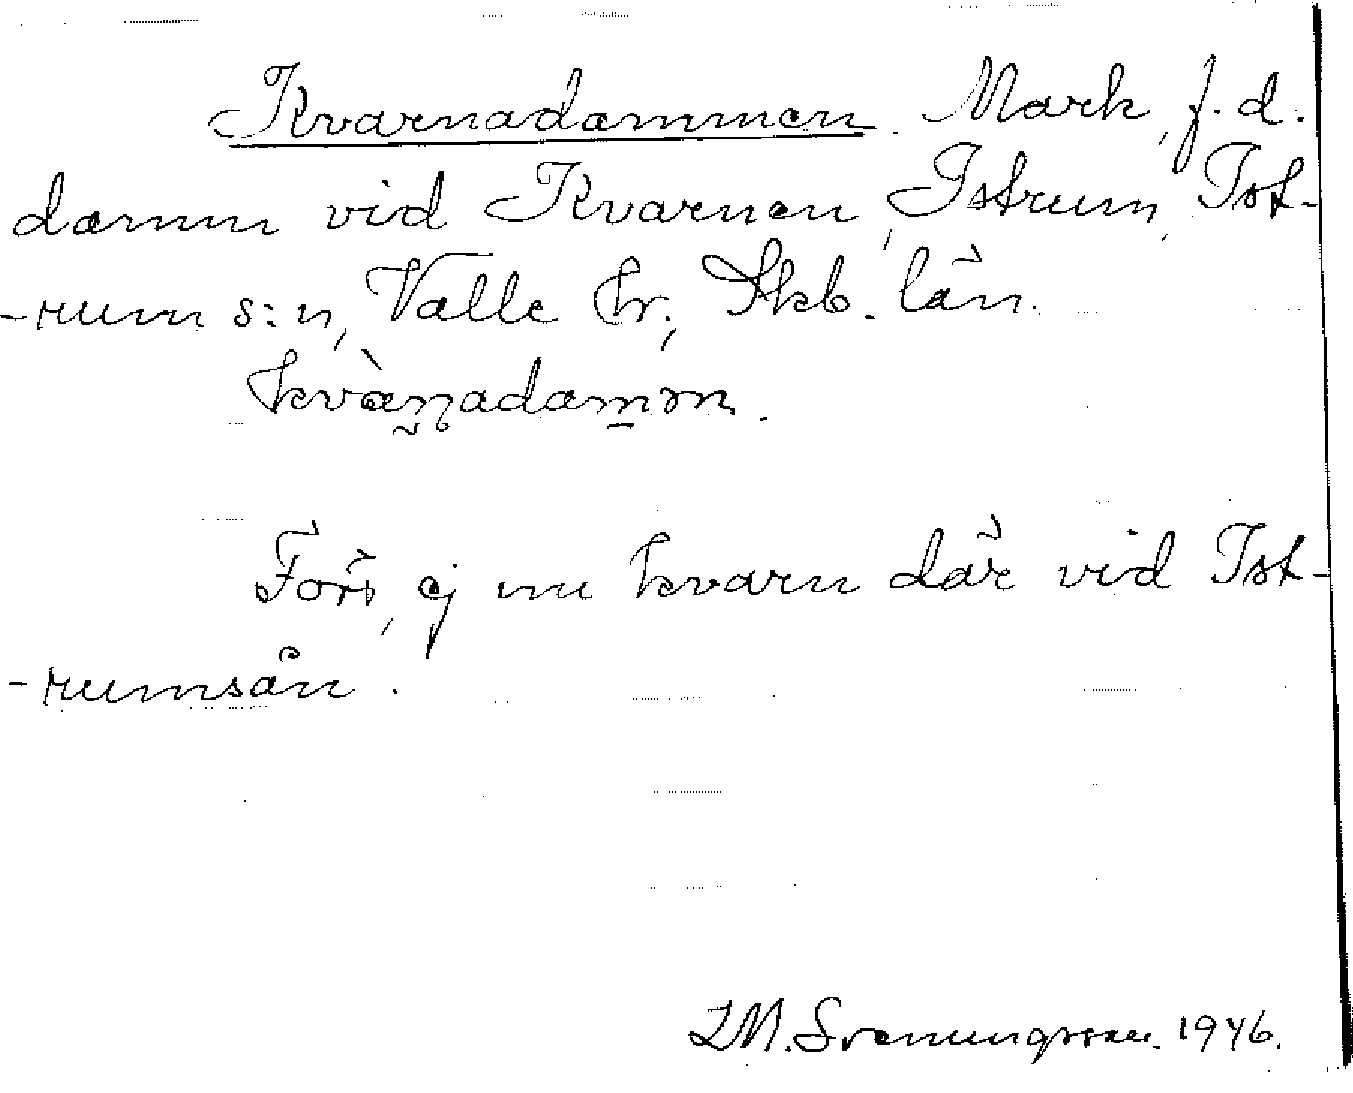 Kvarnadammen. Mark, f.d.
damm vid Kvarnen, Istrum, Ist-
-rum s:n, Valle hr., Skb. län.
kvàn̰adam̠ən.
Förr, ej nu kvarn där vid Ist-
-rumsån.
Svenungsson. 1946.